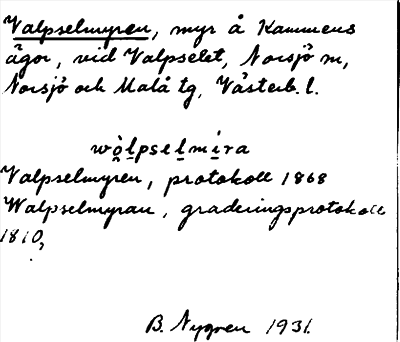 Valpselmyren, myr å Kammens
ägor, vid Valpselet, Norsjö sn,
Norsjö och Malå tg, Västerb. l.
wò̯l̠psel̠mi̠ra
Valpselmyren, protokoll 1868
Walpselmyran, graderingsprotokoll
1810,
B. Nygren 1931.